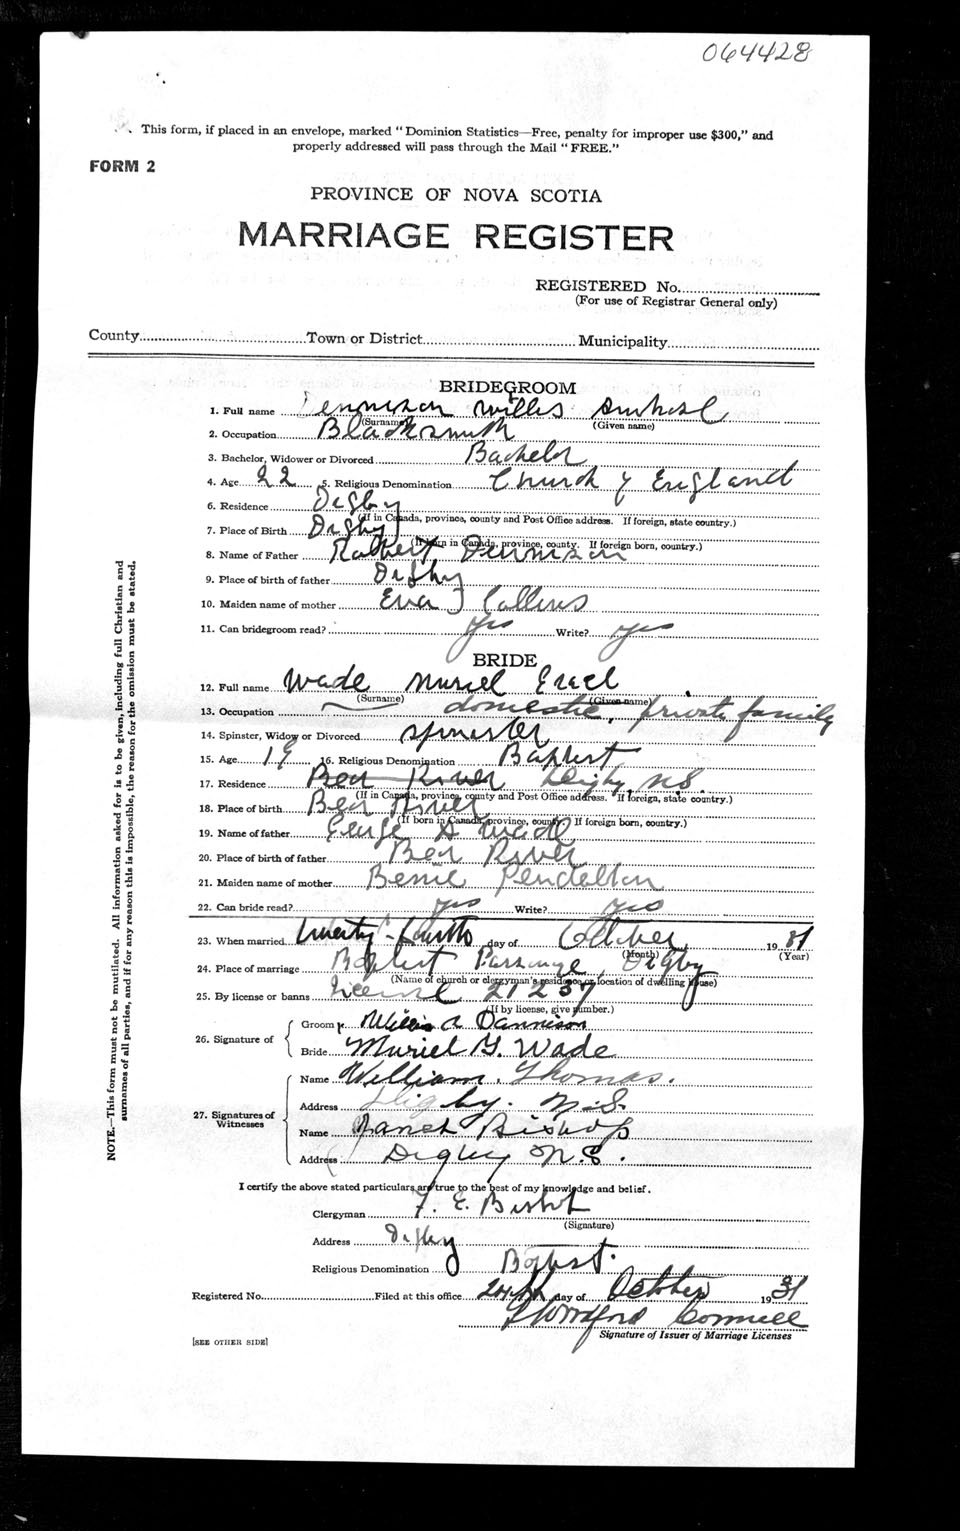 064428
This form, if placed in an envelope, marked "Dominion Statistics—Free, penalty for improper use $300," and
properly addressed will pass through the Mail "FREE."
FORM 2
PROVINCE OF NOVA SCOTIA
MARRIAGE REGISTER
REGISTERED No.
(For use of Registrar General only)
County Town or District Municipality
BRIDEGROOM
1. Full name Dennison Willis
(Surname) (Given name)
2. Occupation Blacksmith
3. Bachelor, Widower or Divorced Bachelor
4. Age 22 5. Religious Denomination Church of England
6. Residence Digby
(If in Canada, province, county and Post Office address. If foreign, state country.)
7. Place of Birth Digby
(If born in Canada, province, county. If foreign born, country.)
8. Name of Father Robert Dennison
9. Place of birth of father Digby
10. Maiden name of mother Eva J Collins
11. Can bridegroom read? yes Write? yes
BRIDE
12. Full name Wade Muriel
(Surname) (Given name)
13. Occupation domestic, private family
14. Spinster, Widow or Divorced spinster
15. Age 19 16. Religious Denomination Baptist
17. Residence Bear River Digby, N.S.
(If in Canada, province, county and Post Office address. If foreign, state country.)
18. Place of birth Bear River
(If born in Canada, province, county. If foreign born, country.)
19. Name of father George A Wade
20. Place of birth of father Bear River
21. Maiden name of mother Bessie Pendelton
22. Can bride read? yes Write? yes
23. When married twenty-fourth day of October 1931
(Month) (Year)
24. Place of marriage Baptist Parsonage, Digby
(Name of church or clergyman's residence or location of dwelling house)
25. By license or banns License 21237
(If by license, give number.)
26. Signature of
Groom Willis A Dannison
Bride Muriel G. Wade
27. Signatures of Witnesses
Name William Thomas.
Address Digby. N.S.
Name Janet Bishop
Address Digby N.S.
I certify the above stated particulars are true to the best of my knowledge and belief.
Clergyman F. E. Bishop
(Signature)
Address Digby
Religious Denomination Baptist.
Registered No. Filed at this office 24th day of October 1931
Signature of Issuer of Marriage Licenses
[SEE OTHER SIDE]
NOTE.—This form must not be mutilated. All information asked for is to be given, including full Christian and
surnames of all parties, and if for any reason this is impossible, the reason for the omission must be stated.